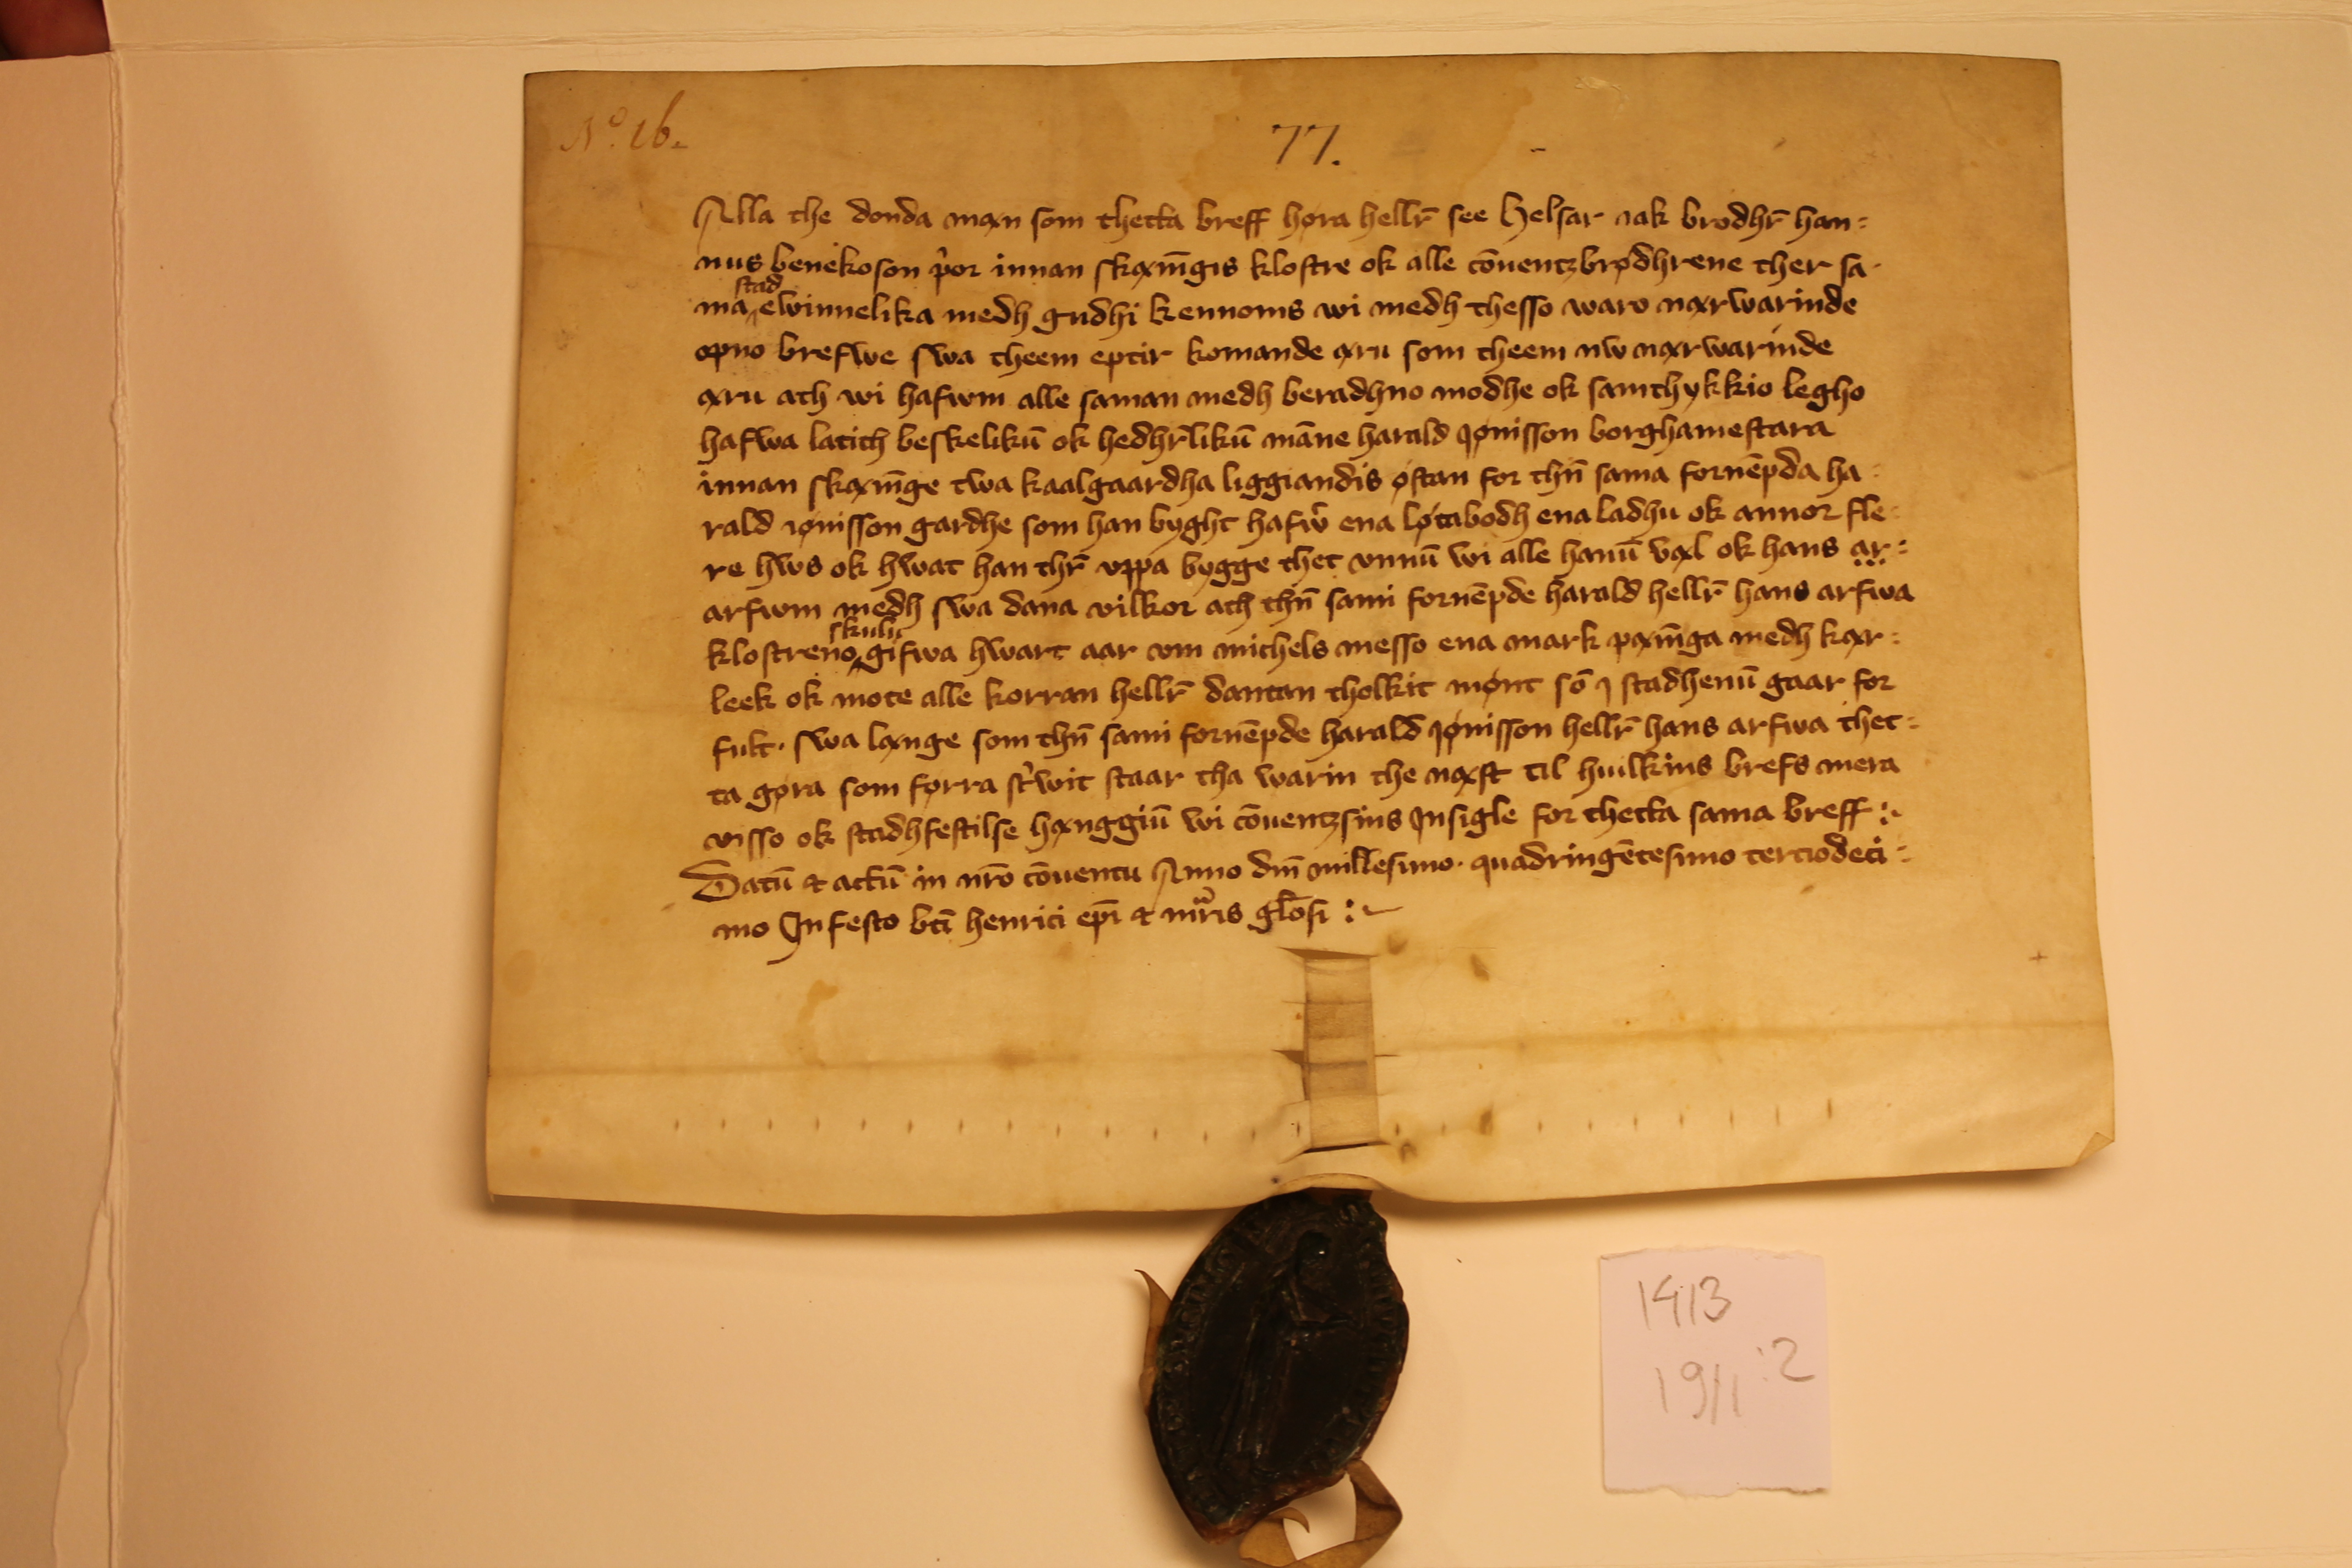 No. 16.
77.
Alla the donda mæn som thetta breff høra hellr̄ see Helsar iak brodhr̄ han=
nus benekoson p̉or innan skæni̅gis klostre ok alle co̅uentzbrødhrene ther sa-
ma stad ewinnelika medh gudhi kennoms wi medh thesso waro nærwarinde
opno brefwe swa theem eptir komande æru som theem nw nærwarinde
æru ath wi hafwm alle saman medh beradhno modhe ok samthykkio legho
hafwa latith beskeliku̅ ok hedhr̄liku̅ ma̅ne harald jønisson borghamestara
innan skæni̅ge twa kaalgaardha liggiandis østan for thn̅ sama forne̅pda ha=
rald iønisson gardhe som han byght hafw̉ ena løtabodh ena ladhu ok annor fle=
re hws ok hwat han thr̄ vppa bygge thet vnnu̅ wi alle hanu̅ væl ok hans ar=
arfwm medh swa dana vilkor ath thn̅ sami forne̅pde harald hellr̄ hans arfwa
klostreno skulu gifwa hwart aar vm michels messo ena mark pæni̅ga medh kær=
leek ok mote alle korran hellr̄ dantan tholkit mønt so̅ j stadhenu̅ gaar for
fult. swa længe som thn̅ sami forne̅pde harald jønisson hellr̄ hans arfwa thet=
ta gøra som førra sc̉wit staar tha warin the næst til huilkins brefs mera
visso ok stadhfestilse hænggiu̅ wi co̅uentzsins Jnsigle for thetta sama breff :.
Datu̅ & actu̅ in nr̄o co̅uentu Anno dn̅i millesimo. quadringe̅tesimo terciodeci=
mo Jn festo bt̅i henrici ep̅i & mr̄is gl̅osi :~
1413
19/1 :2